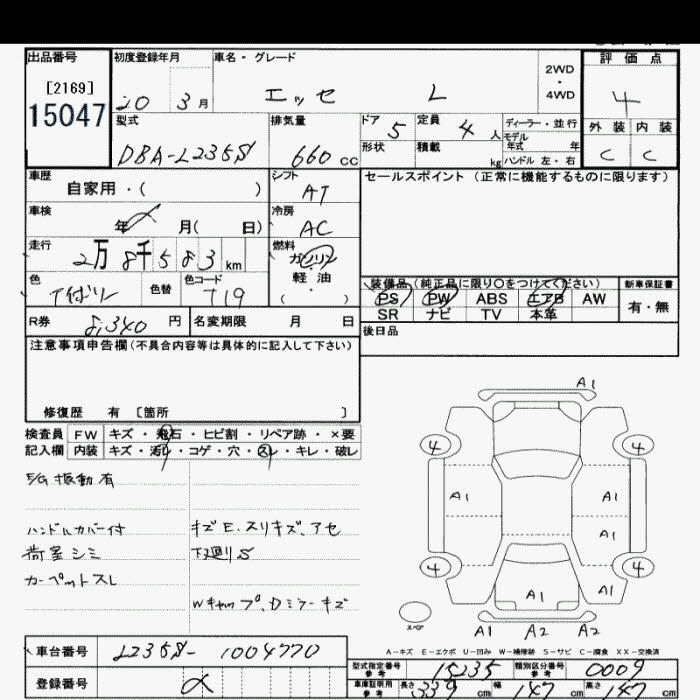 出品番号 初度登録年月 車名・グレード 評価点
[2169] 2WD
・
15047 20 3月 エッセ L 4WD 4
型式 排気量 ドア 5 定員 4人 ディーラー・並行 外装 内装
モデル年式 年
DBA-L235S 660cc 形状 積載 kg ハンドル 左・右 C C
車歴 シフト セールスポイント(正常に機能するものに限ります)
自家用・( ) AT
車検 冷房
年 月( 日) AC
走行 燃料
2万8千583km ガソリン
軽油
・
( )
色 色替 色コード 装備品(純正品に限り○をつけてください) 新車保証書
T19 PS PW ABS エアB AW 有・無
SR ナビ TV 本革
R券 8,340円 名変期限 月 日 後日品
注意事項申告欄(不具合内容等は具体的に記入して下さい)
修復歴 有 [箇所 ]
検査員 FW キズ・飛石・ヒビ割・リペア跡・×要
記入欄 内装 キズ・汚レ・コゲ・穴・スレ・キレ・破レ
E/G振動有
ハンドルカバー付 キズE、スリキズ、アセ
荷室シミ 下廻りS
カーペットスレ
Wキャップ、Dミラーキズ
A1
4 4
A1 A1
A1
4 4
A1 A1
スペア A1 A2 A2
A-キズ E-エクボ U-凹み W-補修跡 S-サビ C-腐食 XX-交換済
車台番号 L235S-1004770
型式指定番号 参考 15235 類別区分番号 参考 0009
登録番号
車庫証明用 参考 長さ 339cm 幅 147cm 高さ 147cm